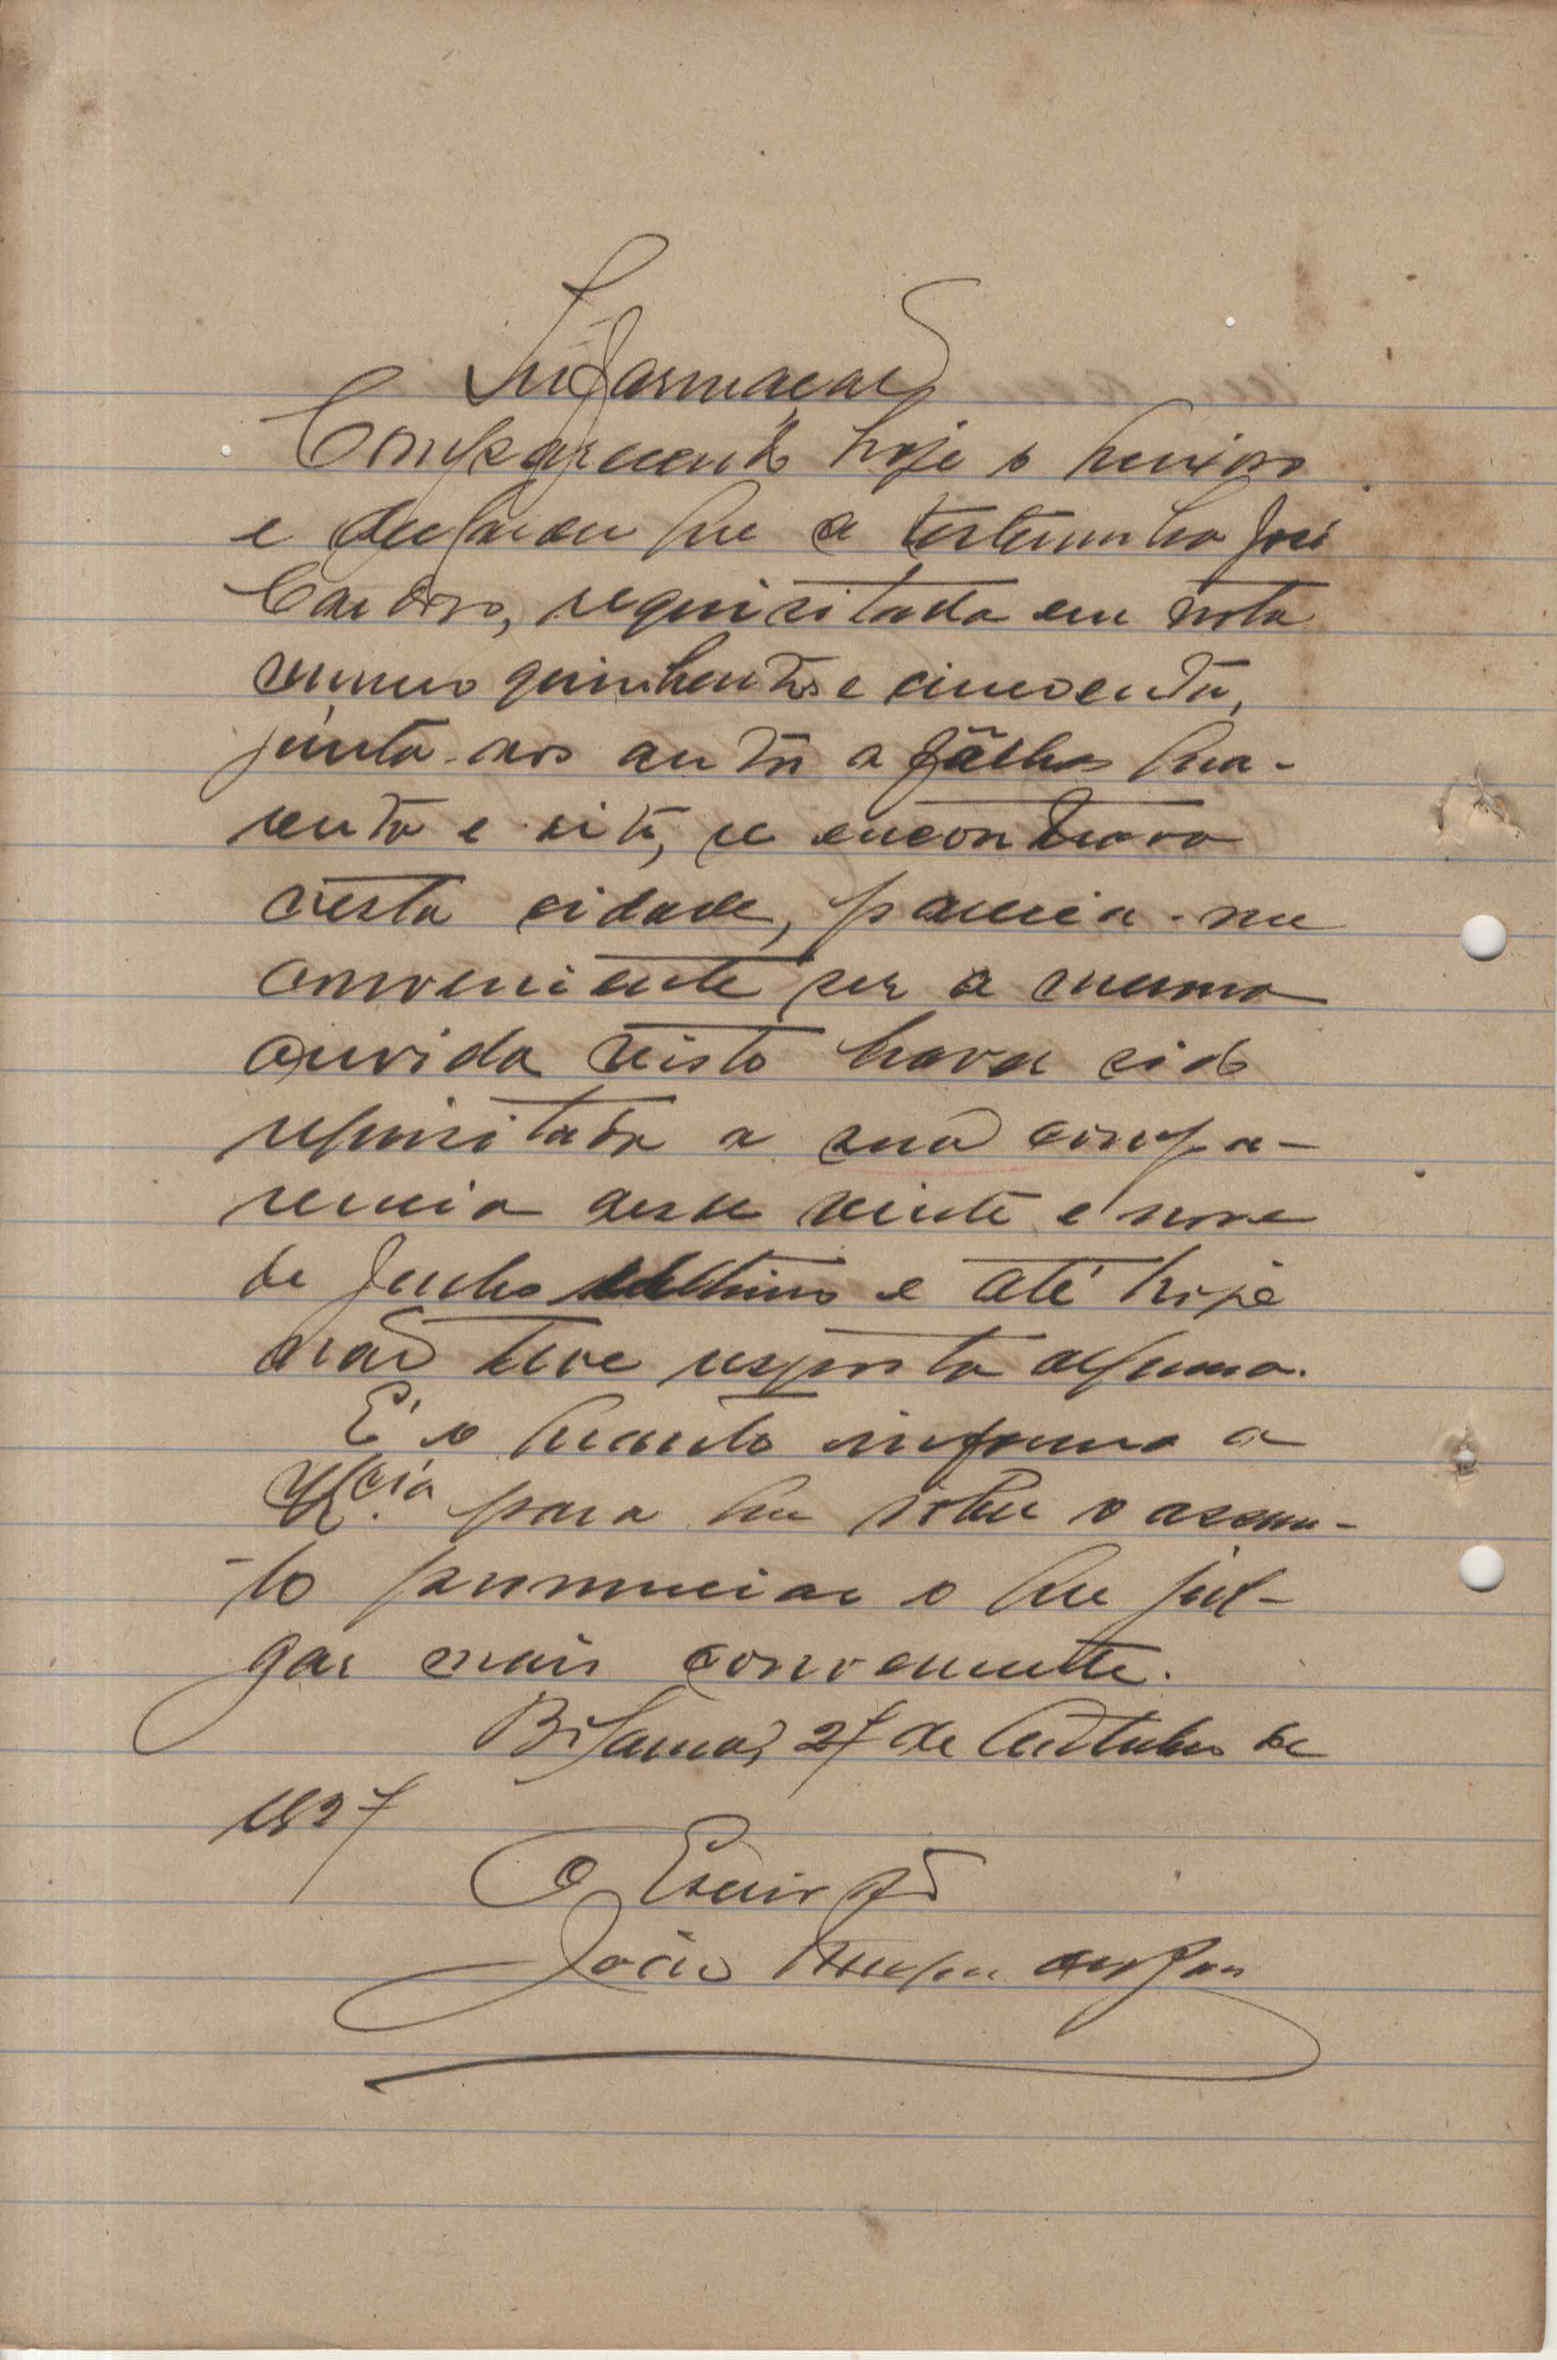 Informação
Comparecendo hoje o queixoso
e declarou que a testemunha José
Cardoso, requisitada em nota
numero quinhentos e cincoenta,
junta aos autos a fôlhas qua-
renta e sete, se encontrava
nesta cidade, parecia-me
conveniente ser a mesma
ouvida visto haver sido
requisitada a sua compa-
rencia desde vinte e nove
de Junho ultimo e até hoje
não teve resposta alguma.
É o quanto informo a
V. Ex.cia para que sobre o assun-
-to pronunciar o que jul-
gar mais conveniente.
Bolama, 27 de Outubro de
1927
O Escrivão
João